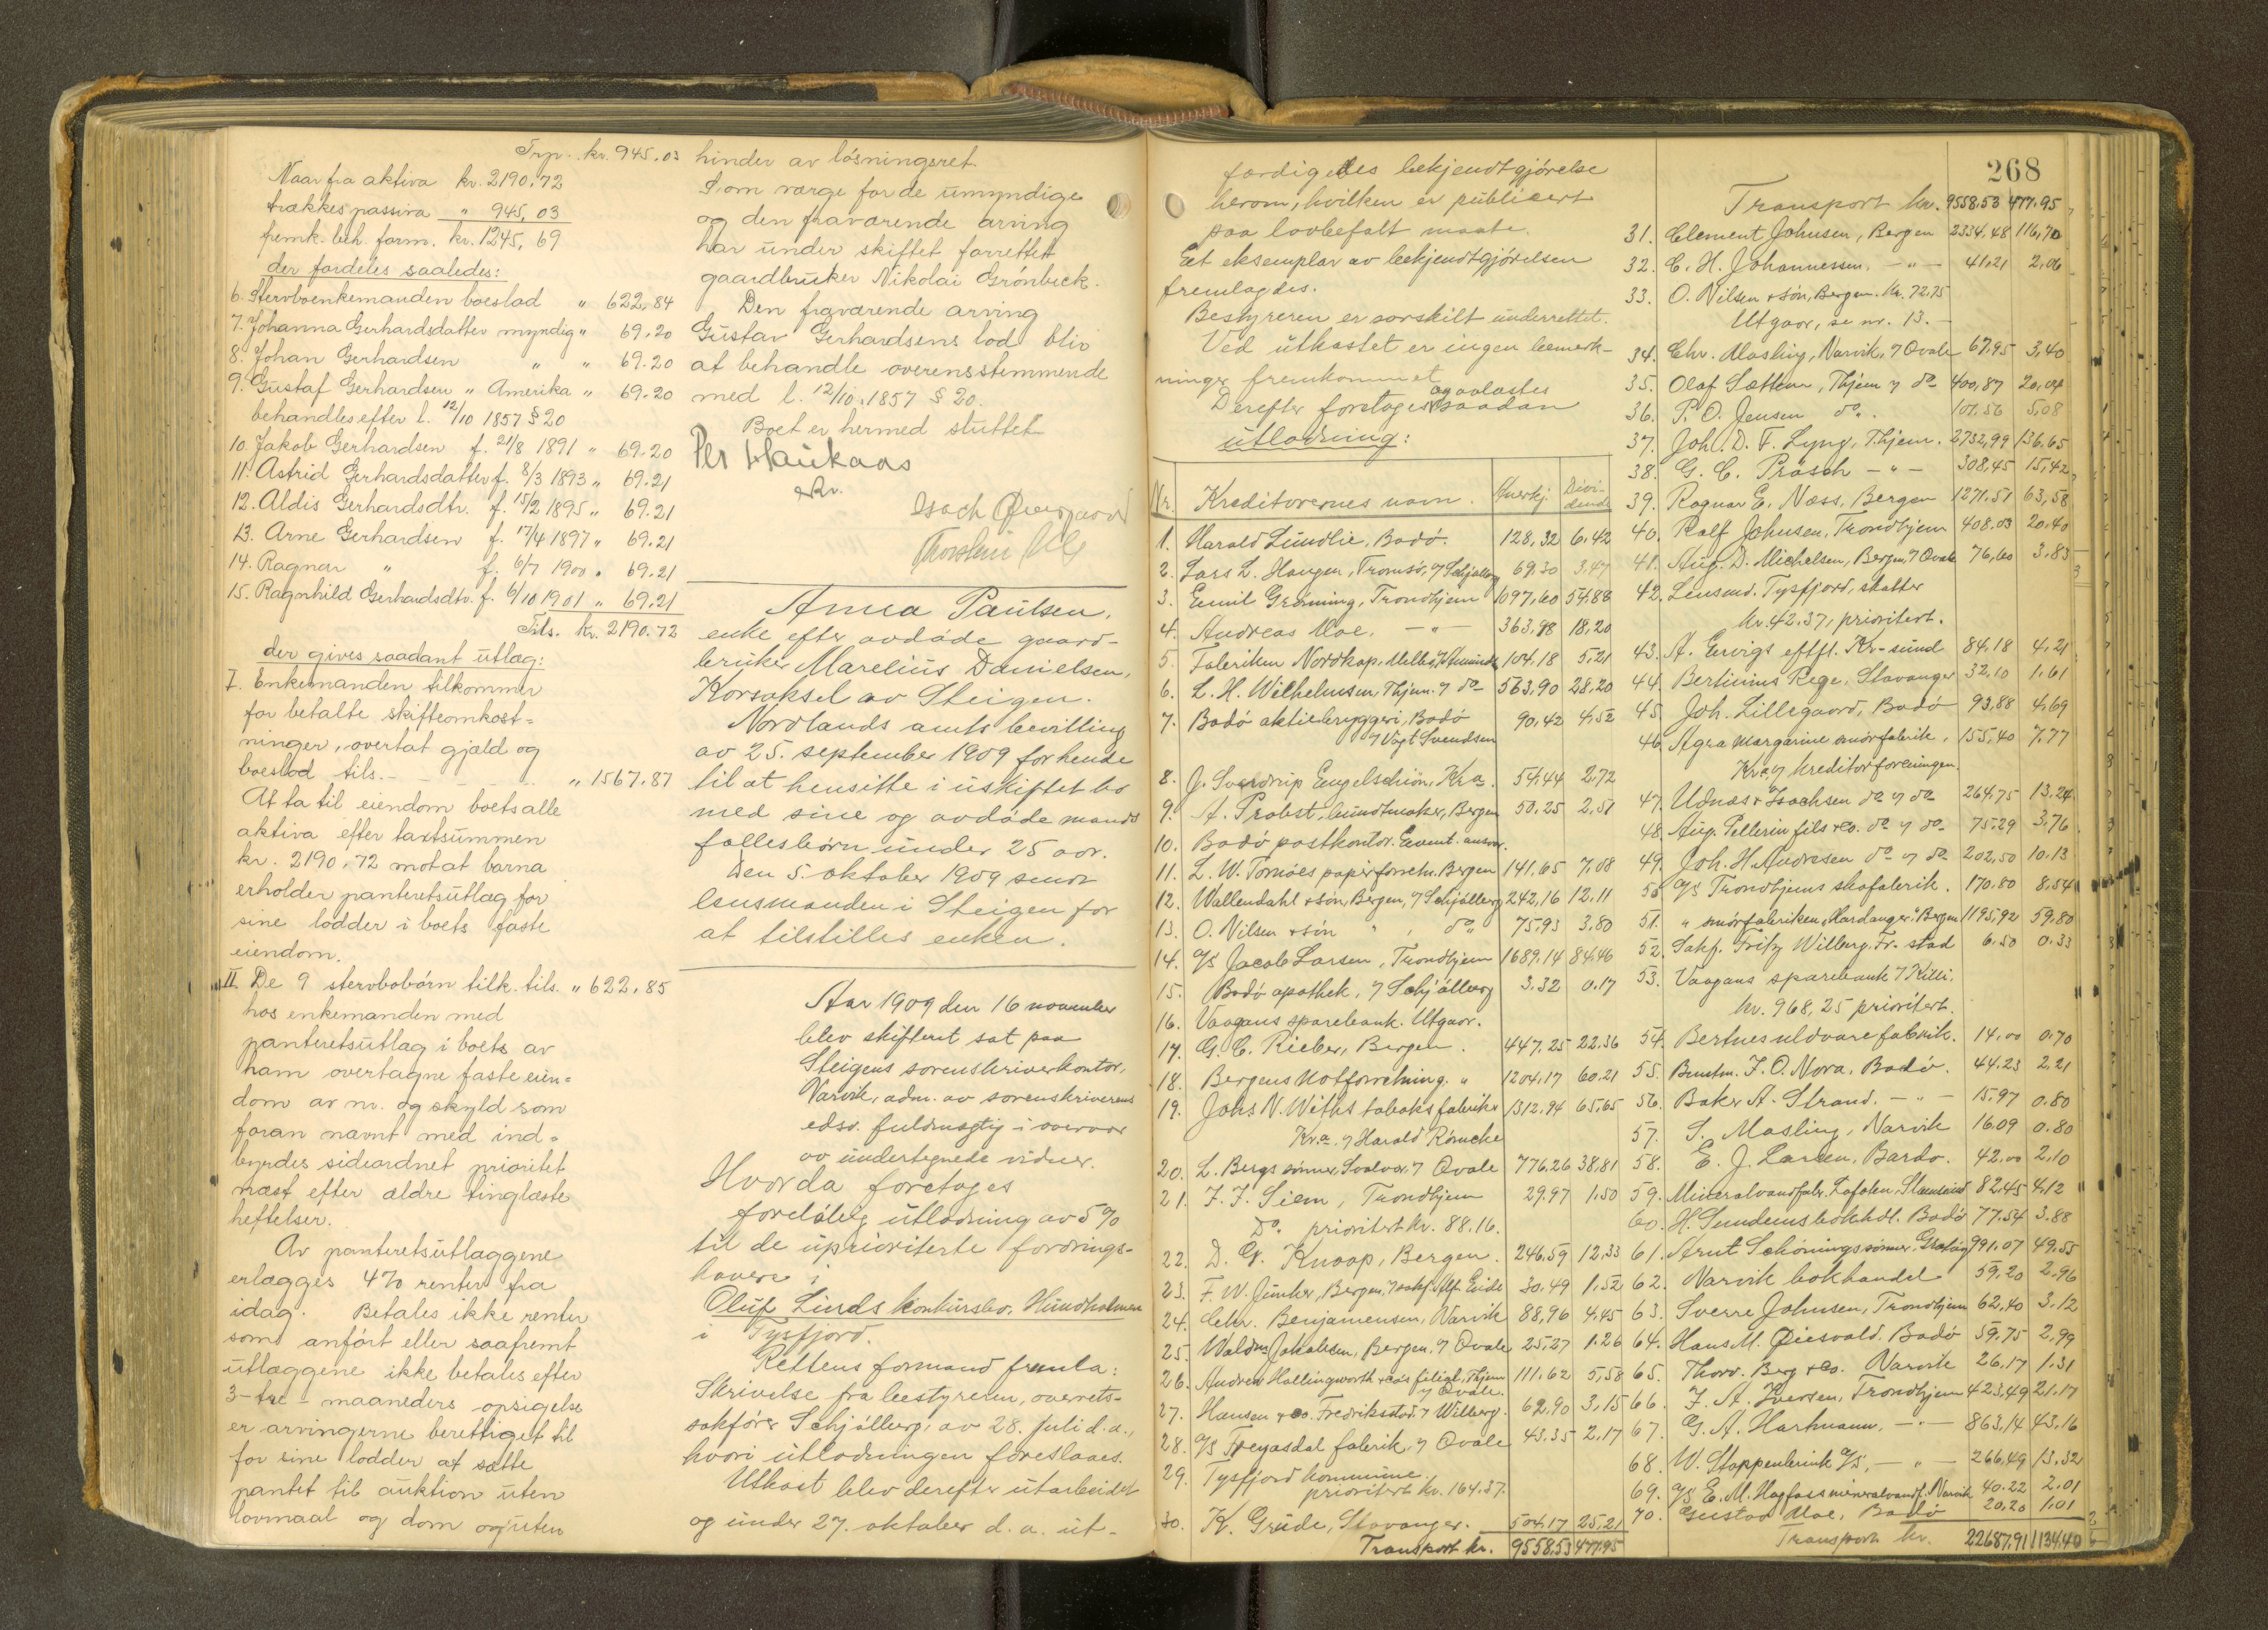 Trp. kr. 945.03
Naar fra aktiva kr. 2190.72
trækkes passiva " 945,03
fremk. beh. form. kr. 1245,69
der fordeles saaledes:
6. Stervboenkemanden boeslod " 622,84
7. Johanna Gerhardsdatter myndig " 69.20
8. Johan Gerhardsen " " 69.20
9. Gustaf Gerhardsen " Amerika " 69.20
behandles efter l. 12/10 1857 § 20
10. Jakob Gerhardsen f. 21/8 1891 " 69.20
11. Astrid Gerhardsdatter f. 8/3 1893 " 69.21
12. Aldis Gerhardsdtr. f. 15/2 1895 " 69.21
13. Arne Gerhardsen f. 17/4 1897 " 69.21
14. Ragnar " f. 6/7 1900 " 69.21
15. Ragnhild Gerhardsdtr. f. 6/10 1901 " 69.21
Tils. kr. 2190.72
der gives saadant utlæg:
I. Enkemanden tilkommer
for betalte skifteomkost=
ninger, overtat gjæld og
boeslod tils. - " 1567.87
At ta til eiendom boets alle
aktiva efter taxtsummen
kr. 2190.72 motat barna
erholder panteretsutlæg for
sine lodder i boets faste
eiendom.
II. De 9 stervbobörn tilk. tils. " 622.85
hos enkemanden med
panteretsutlæg i boets av
ham overtagne faste eien=
dom av nr. og skyld som
foran nævnt med ind=
byrdes sideordnet prioritet
næst efter ældre tinglæste
heftelser.
Av panteretsutlæggene
erlægges 4% renter fra
idag. Betales ikke renter
som anfört eller saafremt
utlæggene ikke betales efter
3 - tre - maaneders opsigelse
er arvingerne berettiget til
for sine lodder at sætte
pantet til auktion uten
lovmaal og dom og uten
hinder av lösningsret.
Som værge for de umyndige
og den fraværende arving
har under skiftet forrettet
gaardbruker Nikolai Grönbeck.
Den fraværende arving
Gustav Gerhardsens lod bliv
at behandle overensstemmende
med l. 12/10 1857 § 20.
Boet er hermed sluttet
Per Haukaas
Isach
Thorstein
Anna Paulsen,
enke efter avdöde gaard-
bruker Marelius Danielsen,
Korsoksel av Steigen.
Nordlands amts bevilling
av 25. september 1909 for hende
til at hensitte i uskiftet bo
med sine og avdöde mands
fællesbörn under 25 aar.
Den 5. oktober 1909 sendt
lensmanden i Steigen for
at tilstilles enken.
Aar 1909 den 16 november
blev skifteret sat paa
Steigens sorenskriverkontor,
Narvik, adm. av sorenskriverens
edsv. fuldmægtig i overvær
av undertegnede vidner.
Hvorda foretages
foreløbig utlodning av 5%
til de uprioriterte fordrings-
havere i
Oluf Linds konkursbo, Hundholmen
i Tysfjord.
Rettens formand fremla:
Skrivelse fra bestyreren, overrets-
sakförer Schjölberg, av 28. juli d.a.,
hvori utlodningen foreslaaes.
Utkast blev derefter utarbeidet
og under 27. oktober d.a. ut-
færdigedes bekjendtgjörelse
herom, hvilken er publicert
paa lovbefalt maate.
Et eksemplar av bekjendtgjörelsen
fremlagdes.
Bestyreren er særskilt underrettet.
Ved utkastet er ingen bemerk-
ninger fremkommet
Derefter foretoges og avlastes saadan
utlodning:
Nr. Kreditorernes navn. Anerkj. Divi-dende
1. Harald Lundlie, Bodö. 128,32 6,42
2. Lars L. Haugen, Tromsö, v/ Schjölberg 69.30 3,47
3. Emil Grönning, Trondhjem 1097,60 54,88
4. Andreas Moe, - " - 363,98 18,20
5. Fabriken Nordkap, Melbo, v/ Amundsen 104,18 5,21
6. L. H. Wilhelmsen, Thjem. v/ do 563,90 28,20
7. Bodö aktiebryggeri, Bodö 90,42 4,52
v/ Vogt Svendsen
8. J. Sverdrup Engelschiön, Kra. 54,44 2,72
9. A. Probst, bundtmaker, Bergen 50,25 2,51
10. Bodö postkontor. Event. ansvar.
11. L. W. Tornöes papirforretn. Bergen 141,65 7,08
12. Wallendahl & sön, Bergen, v/ Schjölberg 242,16 12,11
13. O. Nilsen & sön " , do 75,93 3,80
14. A/S Jacob Larsen, Trondhjem 1689,14 84,46
15. Bodö apothek, v/ Schjölberg 3.32 0.17
16. Vaagans sparebank. Utgaar.
17. G. C. Rieber, Bergen. 447,25 22,36
18. Bergens Notforretning. " 1204,17 60,21
19. Johs N. Withs tobaksfabrik 1312.94 65,65
Kr.a. v/ Harald Römcke
20. L. Bergs sönner, Svolvær v/ Qvale 776.26 38,81
21. J. J. Siem, Trondhjem 29.97 1.50
Do. prioritert kr. 88.16.
22. D. G. Knoop, Bergen. 246,59 12,33
23. F. W. Junker, Bergen, v/ sakf. Alf Eide 30.49 1.52
24. Chr. Benjamensen, Narvik 88,96 4.45
25. Waldm. Jakobsen, Bergen, v/ Qvale 25,27 1.26
26. Andrew Hollingworth & co's filial, Thjem 111.62 5,58
v/ Qvale.
27. Hansen & co. Fredriksstad, v/ Wilberg. 62,90 3,15
28. A/S Freyasdal fabrik, v/ Qvale 43.35 2.17
29. Tysfjord kommune.
prioritert kr. 164.37.
30. K. Grude, Stavanger. 504.17 25,21
Transport kr. 9558,53 477,95
268
Transport kr. 9558,53 477,95
31. Clement Johnsen, Bergen 2334,48 116,70
32. C. H. Johannessen. - " - 41,21 2,06
33. O. Nilsen & sön, Bergen. Kr. 72.75
Utgaar, se nr. 13. -
34. Chr. Masling, Narvik, v/ Qvale 67,95 3,40
35. Olaf Sættem, Thjem v/ do 400,87 20,04
36. P. O. Jensen do. 101,56 5,08
37. Joh. D. F. Lyng, Thjem. 2732,99 136,65
38. G. C. Präsch - " - 308,45 15,42
39. Ragnar E. Næss, Bergen 1271,51 63,58
40. Rolf Johnsen, Trondhjem 408,03 20,40
41. Aug. D. Michelsen, Bergen, v/ Qvale 76,60 3,83
42. Lensmd. Tysfjord, skatter
kr. 42.37, prioritert.
43. A. Envigs eftfl. Kr-sund 84,18 4,21
44. Bertinius Rege, Stavanger 32,10 1.61
45. Joh. Lillegaard, Bodö 93,88 4,69
46. Agra margarine smörfabrik, 155,40 7.77
Kr.a v/ kreditorforeningen.
47. Udnæs & Isachsen do v/ do 264,75 13.24
48. Aug. Pellerin fils & co. do v/ do 75.29 3.76
49. Joh. H. Andresen do v/ do 202,50 10.13
50. A/S Trondhjems skofabrik. 170.80 8,54
51. " smörfabriken "Hardanger", Bergen 1195,92 59,80
52. Sakf. Fritz Wilberg, Fr. stad 6.50 0.33
53. Vaagans sparebank v/ Killi.
kr. 968,25 prioritert.
54. Bertnes uldvarefabrik. 14.00 0.70
55. Bundtm. J. O. Nora, Bodö. 44.23 2,21
56. Baker A. Strand. - " - 15.97 0.80
57. S. Masling, Narvik 16.09 0.80
58. E. J. Larsen, Bardo. 42.00 2,10
59. Mineralvandfabr. Lofoten, Stamsund 82,45 4,12
60. H. Sundems bokhdl. Bodö 77.54 3.88
61. Arnt Schönings sönner, Gratög 991.07 49,55
62. Narvik bokhandel 59,20 2,96
63. Sverre Johnsen, Trondhjem 62,40 3,12
64. Hans M. Qiesvald. Bodö 59.75 2,99
65. Thorv. Berg & co. Narvik 26,17 1.31
66. J. A. Iversen, Trondhjem 423,49 21.17
67. G. A. Hartmann, - " - 863,14 43,16
68. W. Stoppenbrink A/S, - " - 266,49 13,32
69. A/S E. M. Hagfass mineralvandf. Narvik 40.22 2.01
70. Gustav Moe, Bodö 20,20 1.01
Transport kr. 22687,91 1134,40